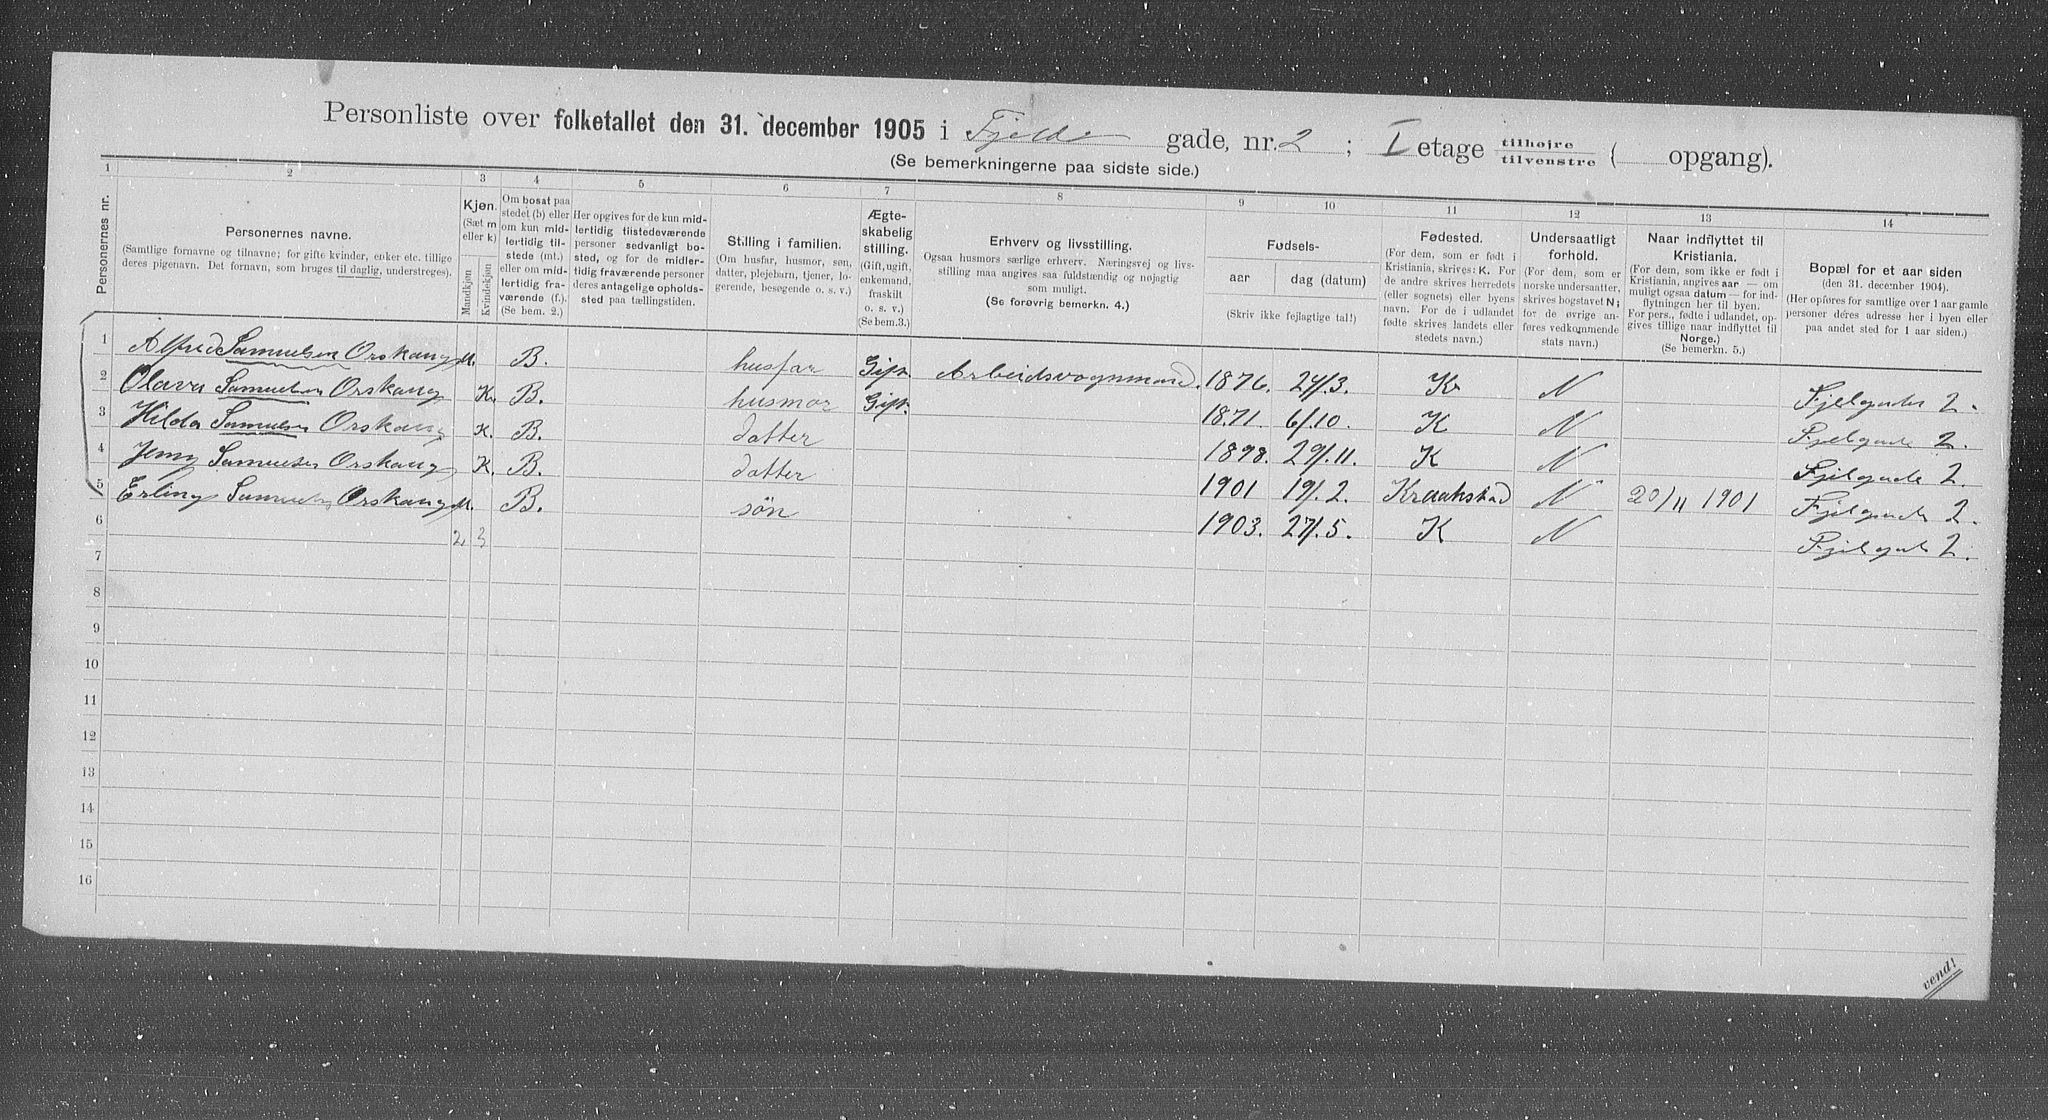 Personliste over folketallet den 31. december 1905 i Fjeld gade, nr. 2 ; I etage tilhøjre tilvenstre ( opgang).
(Se bemerkningerne paa sidste side.)
1 2 3 4 5 6 7 8 9 10 11 12 13 14
Personernes nr.
Personernes navne.
(Samtlige fornavne og tilnavne; for gifte kvinder, enker etc. tillige
deres pigenavn. Det fornavn, som bruges til daglig, understreges).
Kjøn.
(Sæt m
eller k)
Mandkjøn
Kvindekjøn
Om bosat paa
stedet (b) eller
om kun mid-
lertidig til-
stede (mt.)
eller om mid-
lertidig fra-
værende (f.).
(Se bem. 2.)
Her opgives for de kun mid-
lertidig tilstedeværende
personer sedvanligt bo-
sted, og for de midler-
tidig fraværende personer
deres antagelige opholds-
sted paa tællingstiden.
Stilling i familien.
(Om husfar, husmor, søn,
datter, plejebarn, tjener, lo-
gerende, besøgende o. s. v.)
Ægte-
skabelig
stilling.
(Gift, ugift,
enkemand,
fraskilt
o. s. v.)
(Se bem.3.)
Erhverv og livsstilling.
Ogsaa husmors særlige erhverv. Næringsvej og livs-
stilling maa angives saa fuldstændig og nøjagtig
som muligt.
(Se forøvrig bemerkn. 4.)
Fødsels-
aar dag (datum)
(Skriv ikke fejlagtige tal!)
Fødested.
(For dem, som er født i
Kristiania, skrives: K. For
de andre skrives herredets
(eller sognets) eller byens
navn. For de i udlandet
fødte skrives landets eller
stedets navn.)
Undersaatligt
forhold.
(For dem, som er
norske undersaatter,
skrives bogstavet N;
for de øvrige an-
føres vedkommende
stats navn.)
Naar indflyttet til
Kristiania.
(For dem, som ikke er født i
Kristiania, angives aar — om
muligt ogsaa datum — for ind-
flytningen her til byen.
For pers., fødte i udlandet, op-
gives tillige naar indflyttet til
Norge.)
(Se bemerkn. 5.)
Bopæl for et aar siden
(den 31. december 1904).
(Her opføres for samtlige over 1 aar gamle
personer deres adresse her i byen eller
paa andet sted for 1 aar siden.)
1 Alfred Samuelsen Orskaug M. B. husfar Gift. Arbeidsvognmand. 1876. 24/3. K N Fjelgade 2.
2 Olava Samuelsen Orskaug K. B. husmor Gift. 1871. 6/10. K N Fjelgade 2.
3 Hilda Samuelsen Orskaug K. B. datter 1898. 29/11. K N Fjelgade 2.
4 Jenny Samuelsen Orskaug K. B. datter 1901 19/2. Kraakstad N 20/11 1901 Fjelgade 2.
5 Erling Samuelsen Orskaug M. B. søn 1903. 27/5. K N Fjelgade 2.
6 2 3
7
8
9
10
11
12
13
14
15
16
vend!